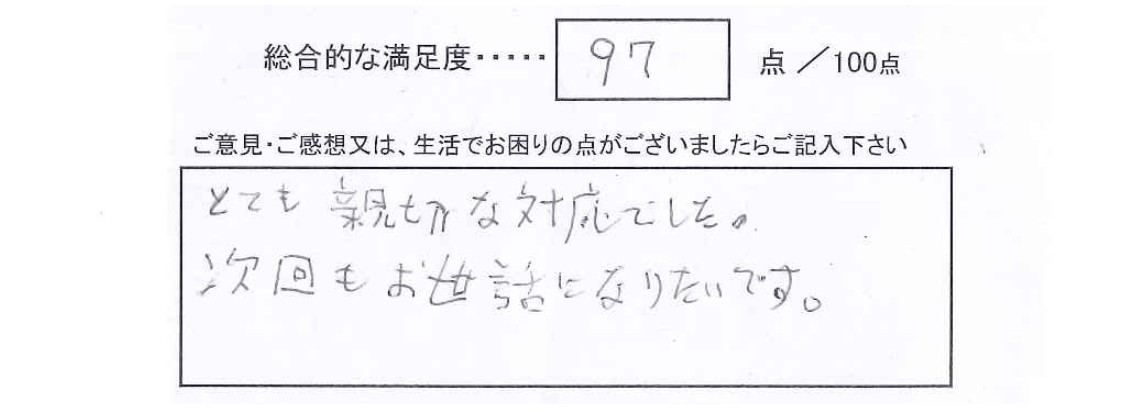 総合的な満足度・・・・・ 97 点 ／100点
ご意見・ご感想又は、生活でお困りの点がございましたらご記入下さい
とても親切な対応でした。
次回もお世話になりたいです。